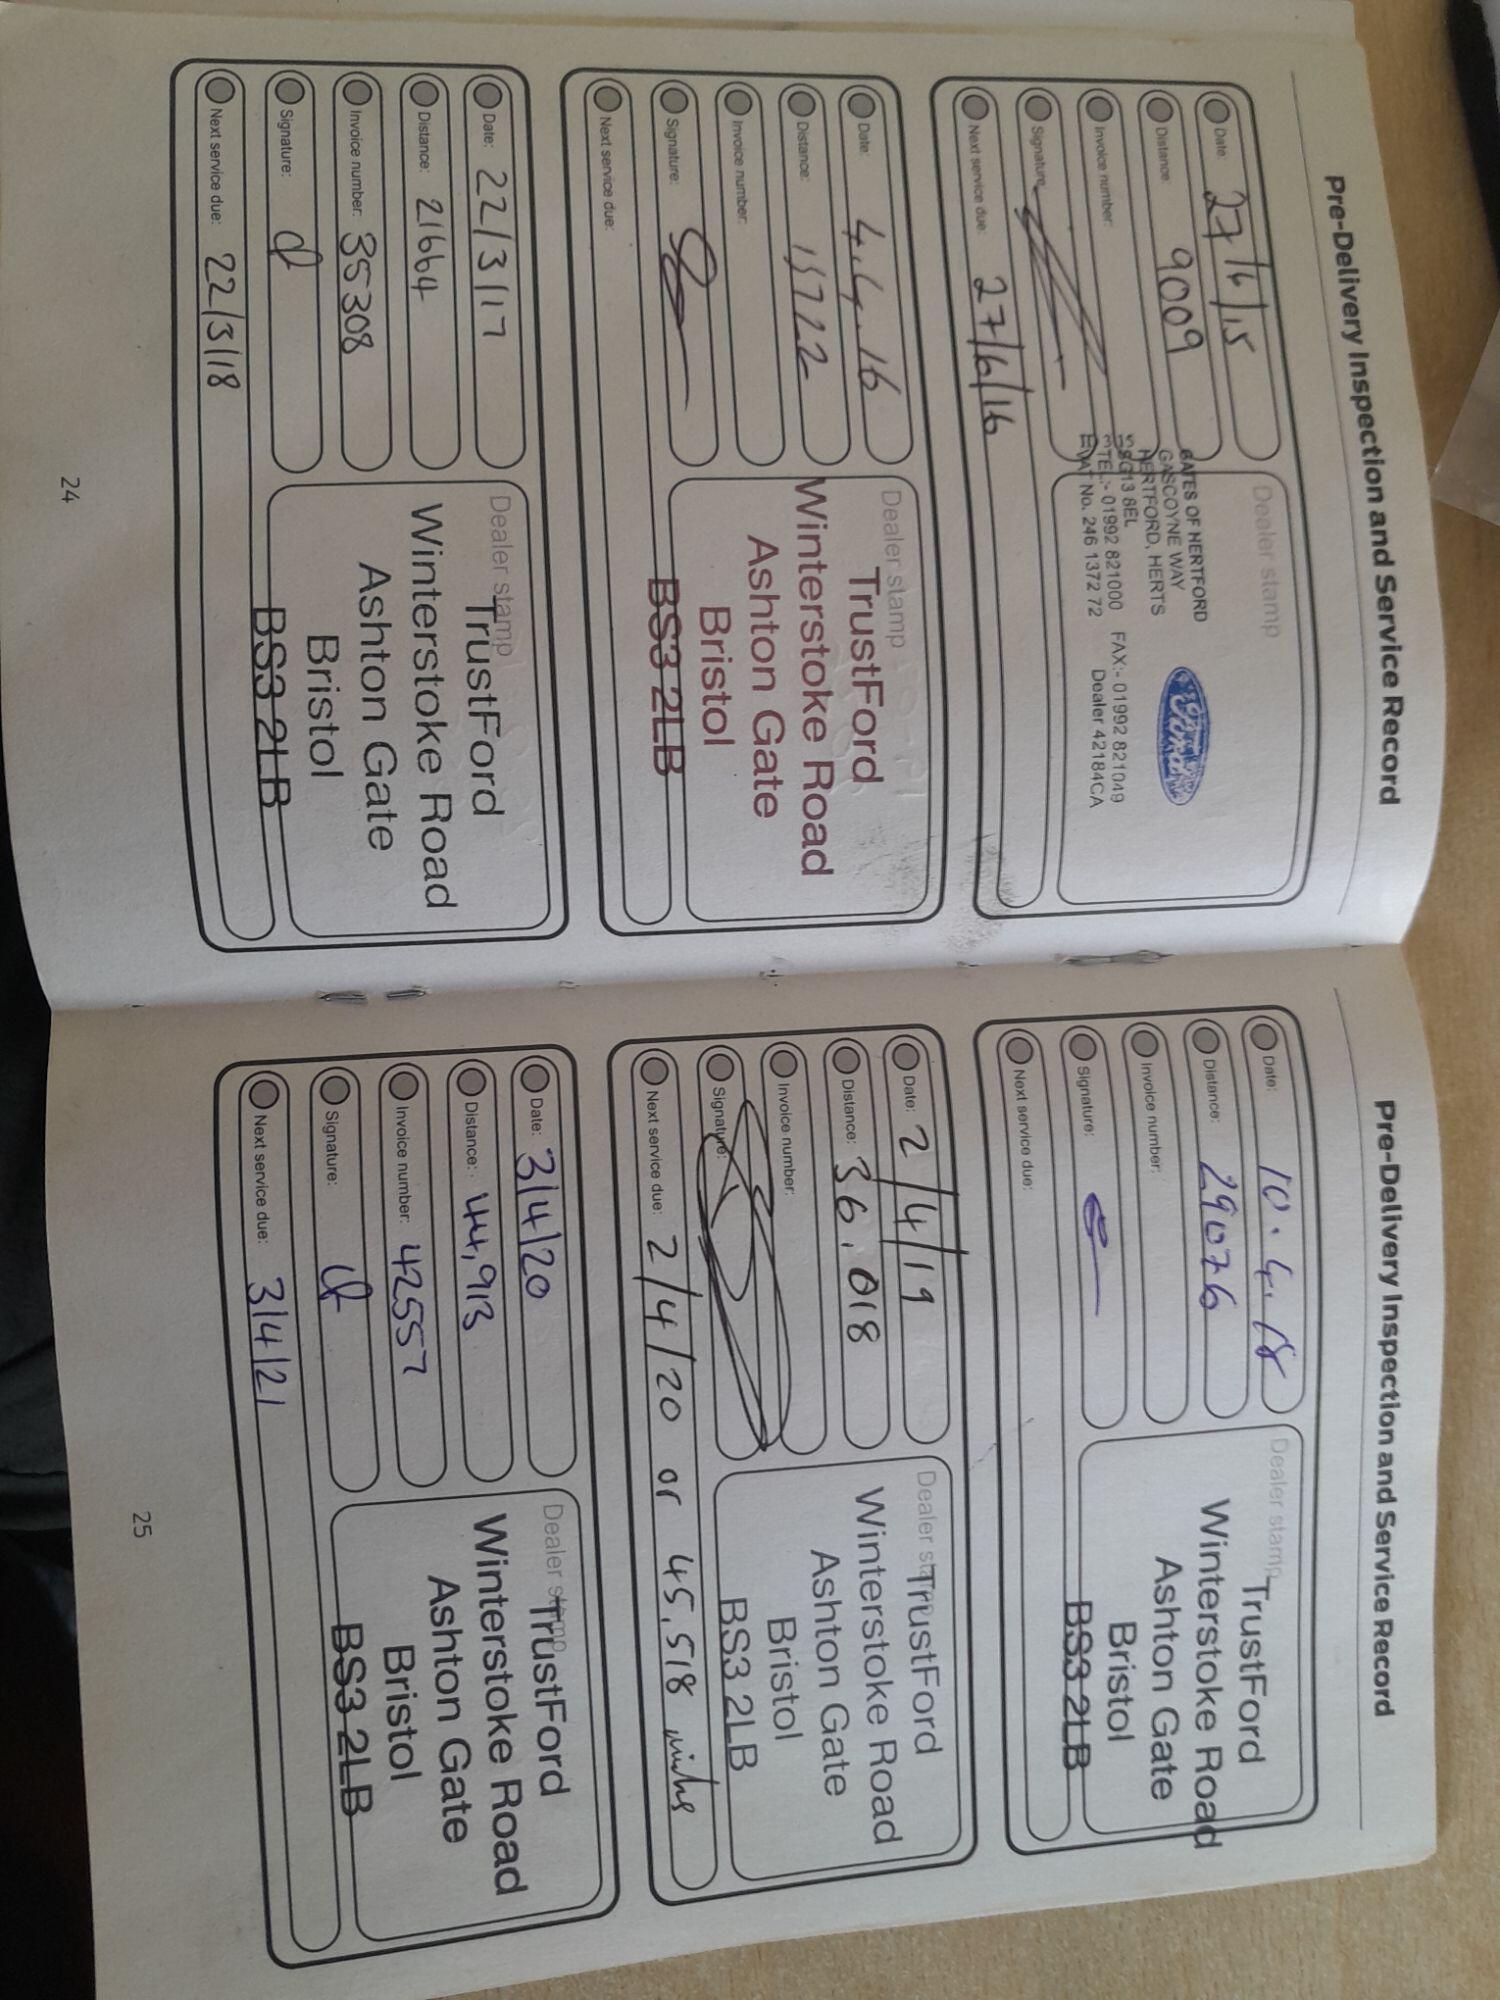 Pre-Delivery Inspection and Service Record
Date: 27/6/15
Distance: 9009
Invoice number:
Signature:
Next service due: 27/6/16
Dealer stamp
GATES OF HERTFORD
GASCOYNE WAY
HERTFORD, HERTS
SG13 8EL
TEL:- 01992 821000 FAX:- 01992 821049
VAT No. 246 1372 72 Dealer 42184CA
Ford
Date: 4.4.16
Distance: 15722
Invoice number:
Signature:
Next service due:
Dealer stamp
TrustFord
Winterstoke Road
Ashton Gate
Bristol
BS3 2LB
Date: 22/3/17
Distance: 21664
Invoice number: 35308
Signature:
Next service due: 22/3/18
Dealer stamp
TrustFord
Winterstoke Road
Ashton Gate
Bristol
BS3 2LB
24
Pre-Delivery Inspection and Service Record
Date: 10.4.18
Distance: 29076
Invoice number:
Signature:
Next service due:
Dealer stamp
TrustFord
Winterstoke Road
Ashton Gate
Bristol
BS3 2LB
Date: 2/4/19
Distance: 36,018
Invoice number:
Signature:
Next service due: 2/4/20 or 45,518
Dealer stamp
TrustFord
Winterstoke Road
Ashton Gate
Bristol
BS3 2LB
Date: 3/4/20
Distance: 44,913
Invoice number: 42557
Signature:
Next service due: 3/4/21
Dealer stamp
TrustFord
Winterstoke Road
Ashton Gate
Bristol
BS3 2LB
25